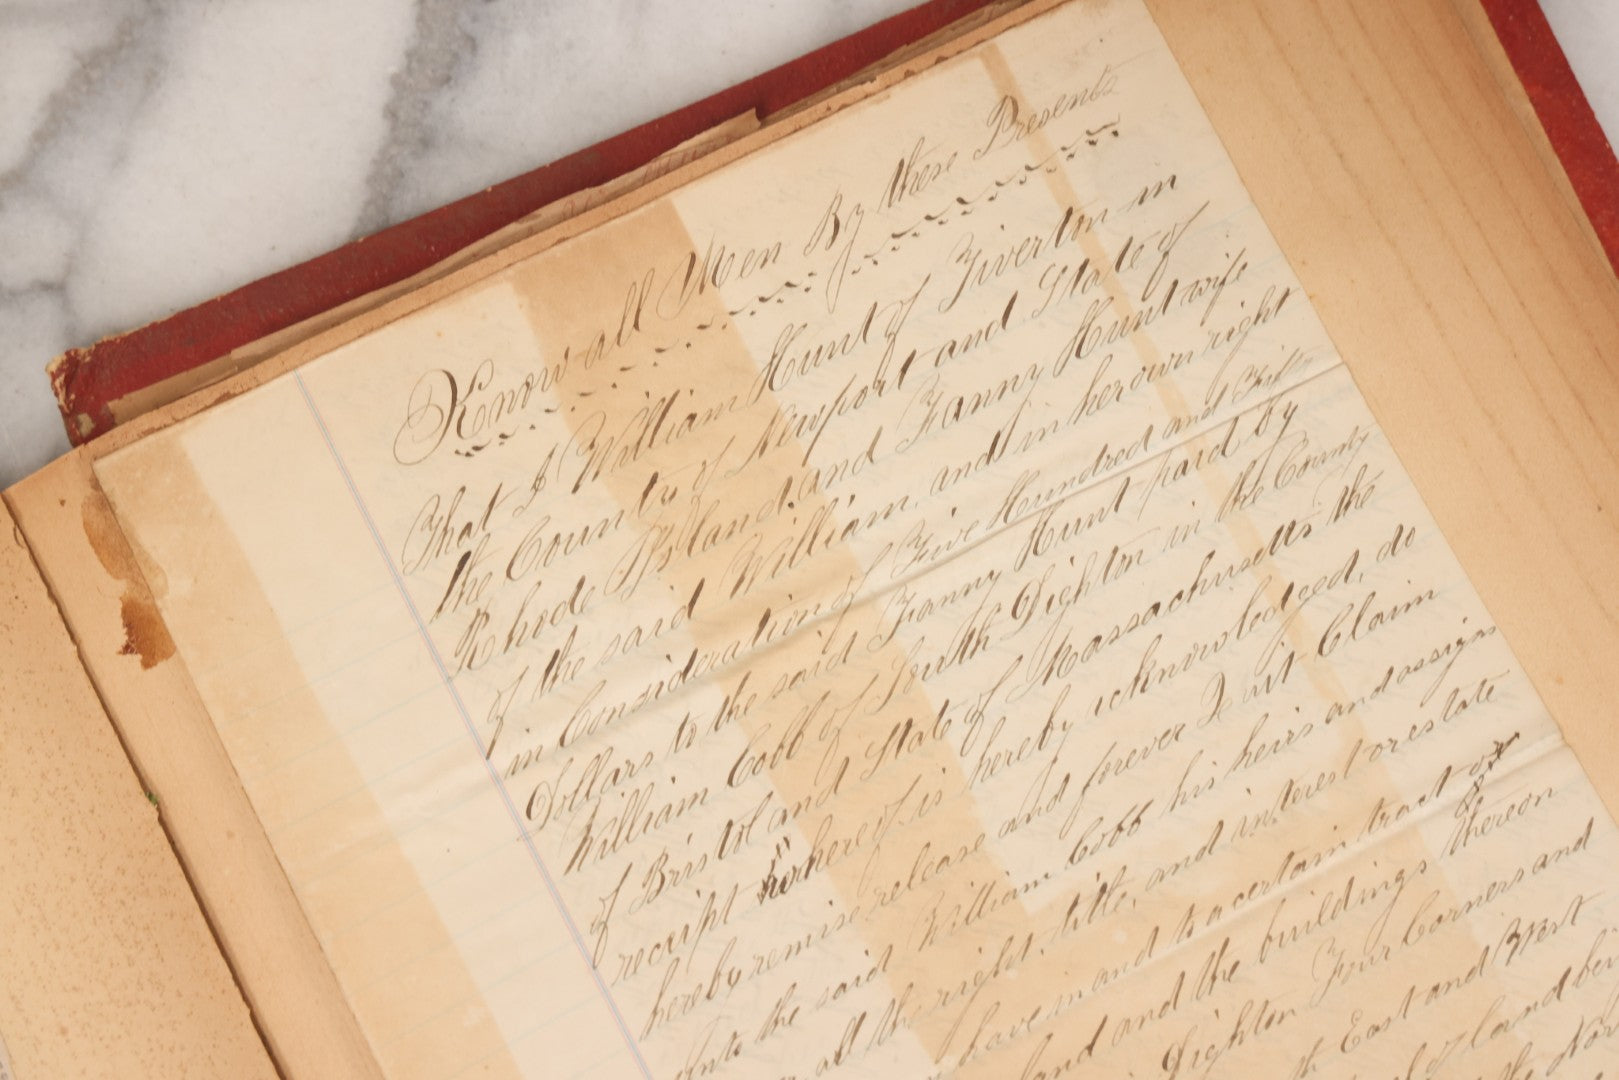 Know all Men By these Presents
That I William Hunt of Tiverton in
the County of Newport and State of
Rhode Island, and Fanny Hunt wife
of the said William, and in her own right
in Consideration of Five Hundred and
Dollars to the said Fanny Hunt paid by
William Cobb of South Dighton in the County
of Bristol and State of Massachusetts the
receipt whereof is hereby acknowledged, do
hereby remise release and forever Quit Claim
unto the said William Cobb his heirs and assigns
all the right, title, and interest or estate
have in and to a certain tract or
land and the buildings thereon
Dighton Four Corners and
East and West
of land
the